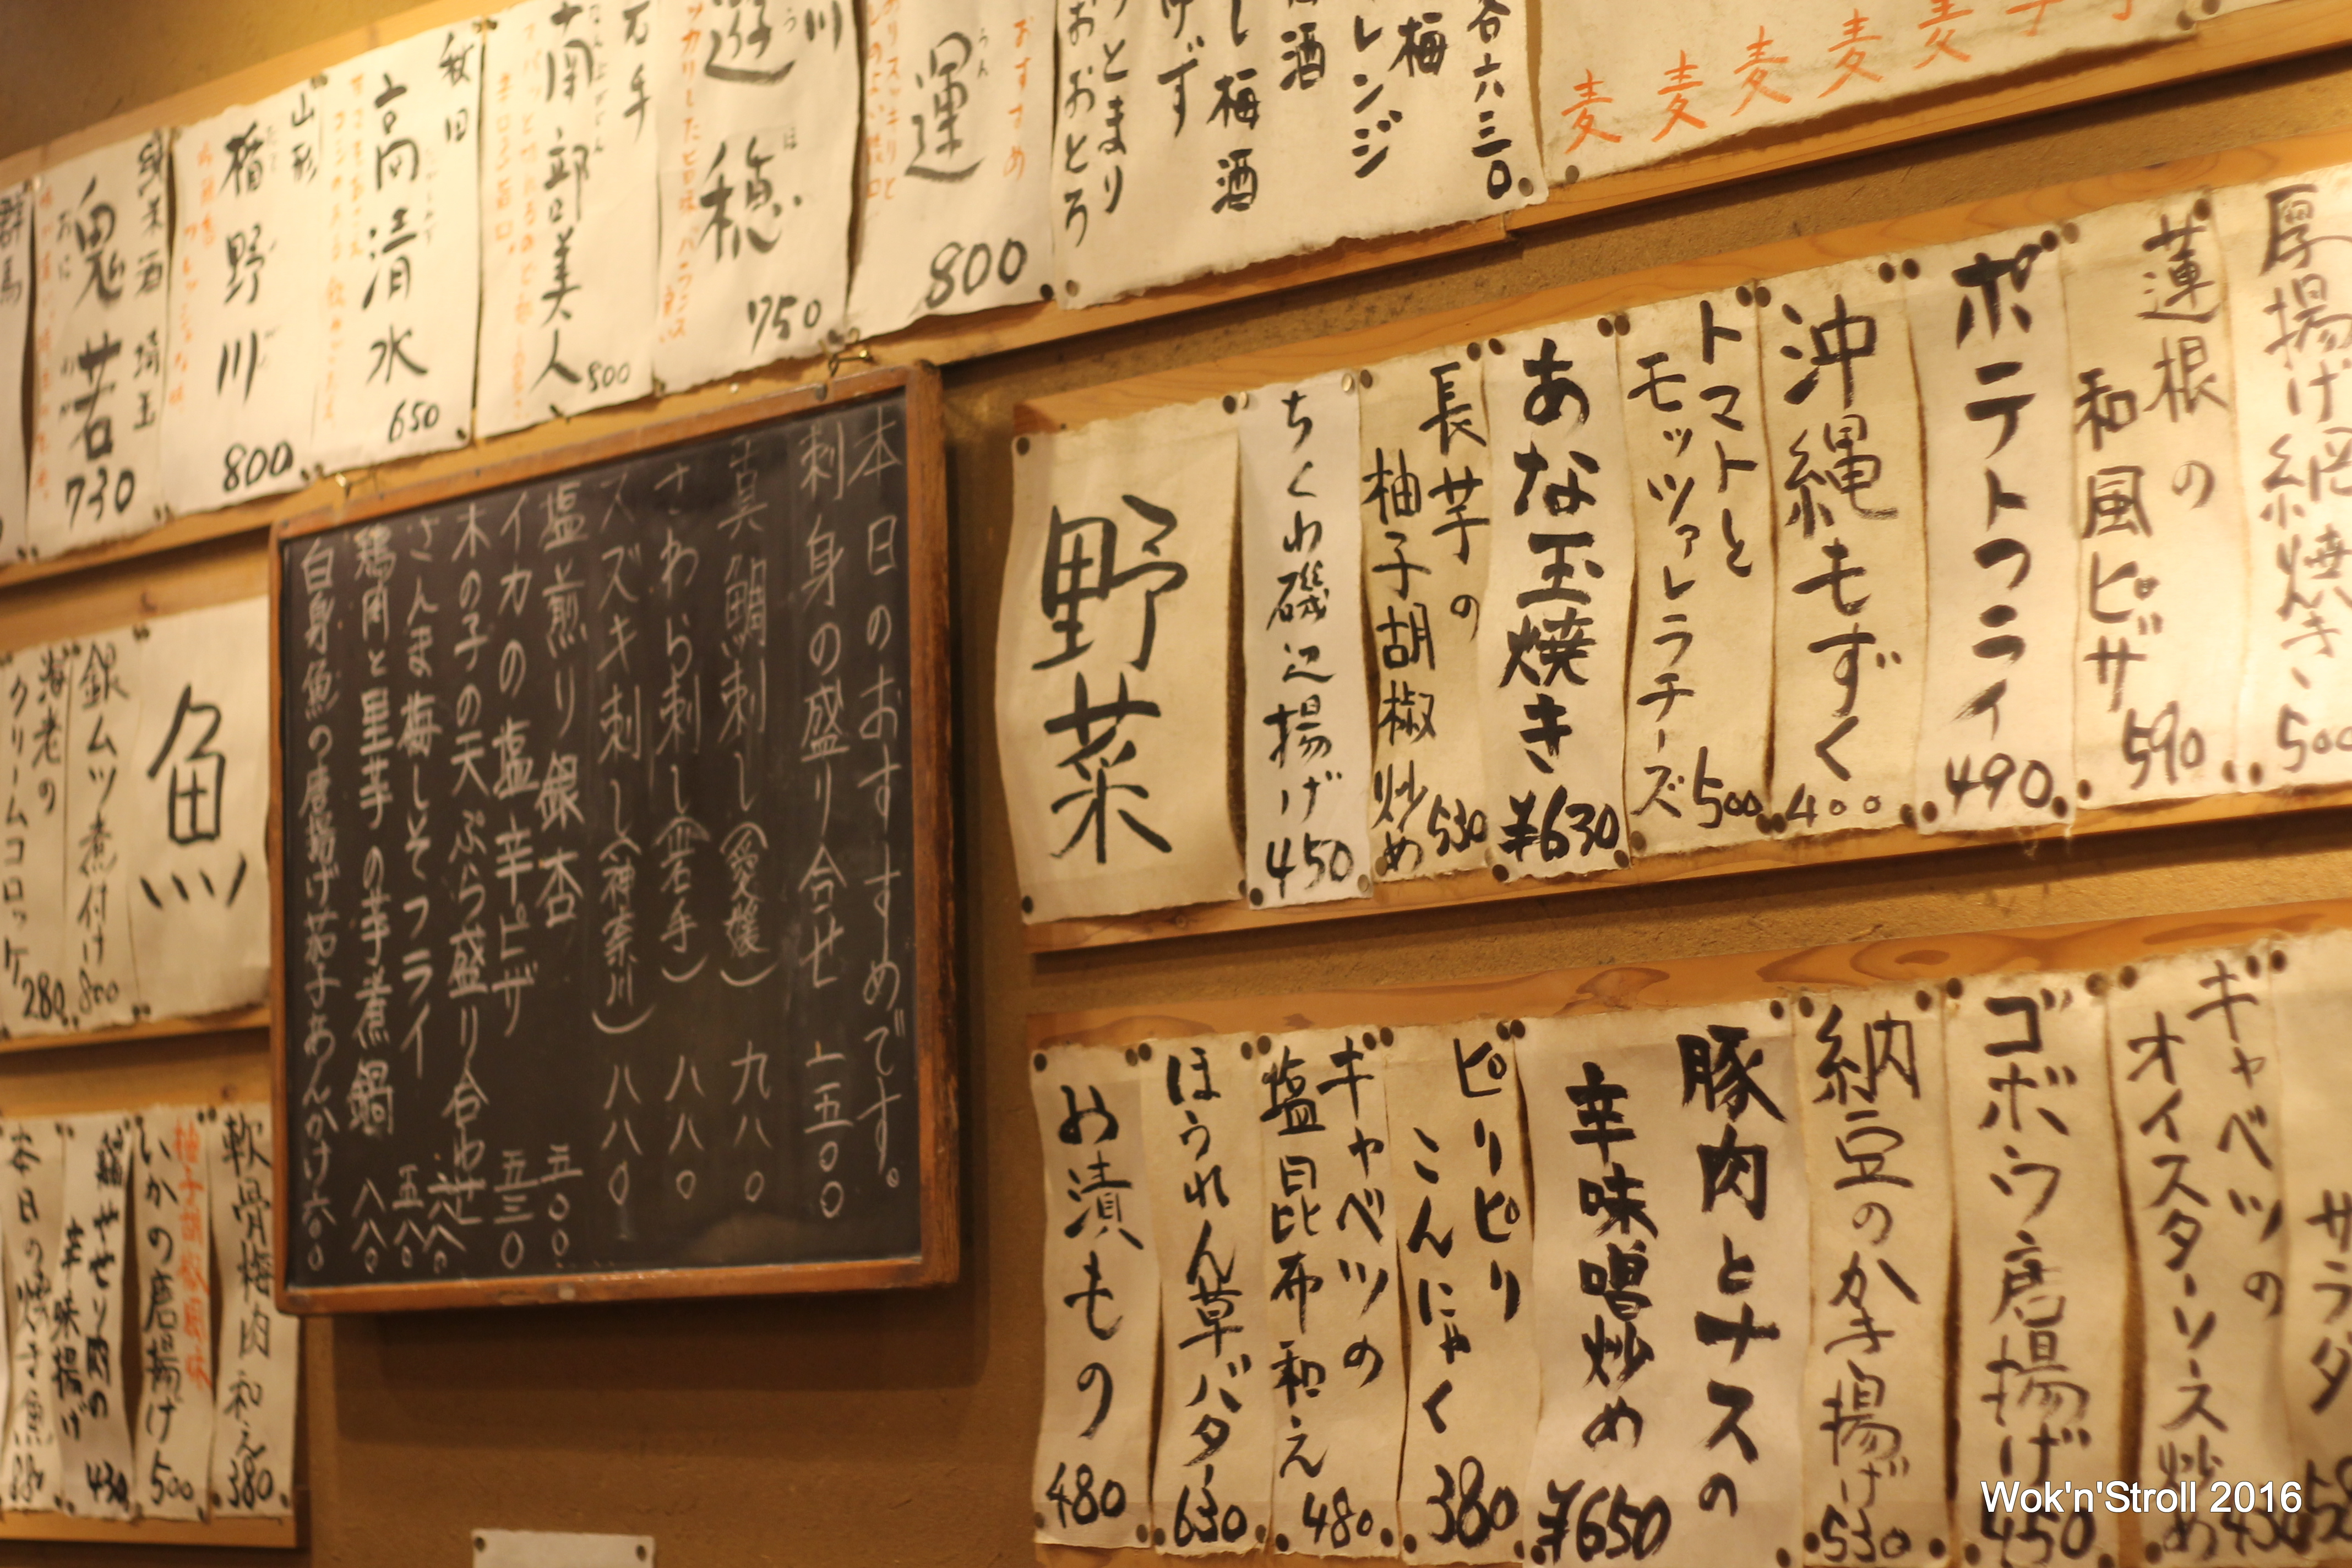 麦 麦 麦 麦 麦
各六三〇
梅
レンジ
酒
し梅酒
げず
っとまり
おおとろ
おすすめ
運
うん
800
川
遊穂
ほ
750
岩手
南部美人
800
秋田
高清水
650
山形
楯野川
800
純米酒 埼玉
鬼若
730
群馬
厚揚げ網焼き
500
蓮根の
和風ピザ
590
ポテトフライ
490
沖縄もずく
400
トマトと
モッツァレラチーズ
500
あな玉焼き
¥630
長芋の
柚子胡椒炒め
530
ちくわ磯辺揚げ
450
野菜
本日のおすすめです。
刺身の盛り合せ 一五〇〇
真鯛刺し(愛媛) 九八〇
さわら刺し(岩手) 八八〇
スズキ刺し(神奈川) 八八〇
塩煎り銀杏 五〇〇
イカの塩辛ピザ 五三〇
木の子の天ぷら盛り合わせ 六八〇
さんま梅しそフライ 五八〇
鶏肉と里芋の芋煮鍋 八八〇
白身魚の唐揚げ茄子あんかけ 六〇〇
魚
銀ムツ煮付け
800
海老の
クリームコロッケ
280
サラダ
キャベツの
オイスターソース炒め
430
ゴボウ唐揚げ
450
納豆のかき揚げ
530
豚肉とナスの
辛味噌炒め
¥650
ピリピリ
こんにゃく
380
キャベツの
塩昆布和え
480
ほうれん草バター
630
お漬もの
480
軟骨梅肉和え
380
柚子胡椒風味
いかの唐揚げ
500
辛味揚げ
430
Wok'n'Stroll 2016